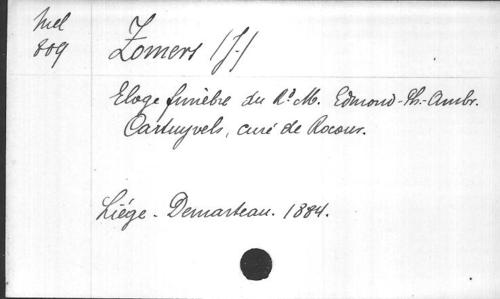 Mel
809
Zomers (J.)
Eloge funèbre du Rd M. Edmond-Th.-Ambr.
Cartuyvels, curé de Rocour.
Liége - Demarteau. 1884.